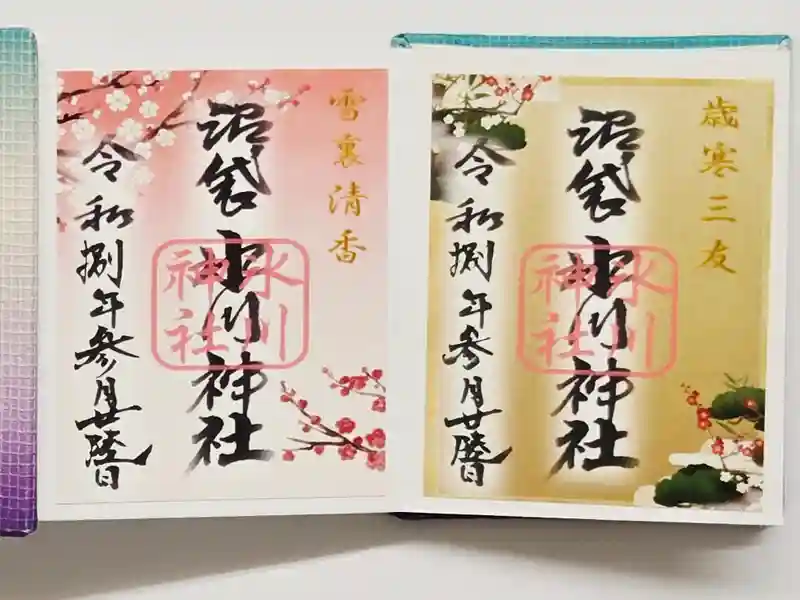 雪裏清香
沼袋氷川神社
氷川神社
令和捌年参月廿陸日
歳寒三友
沼袋氷川神社
氷川神社
令和捌年参月廿陸日